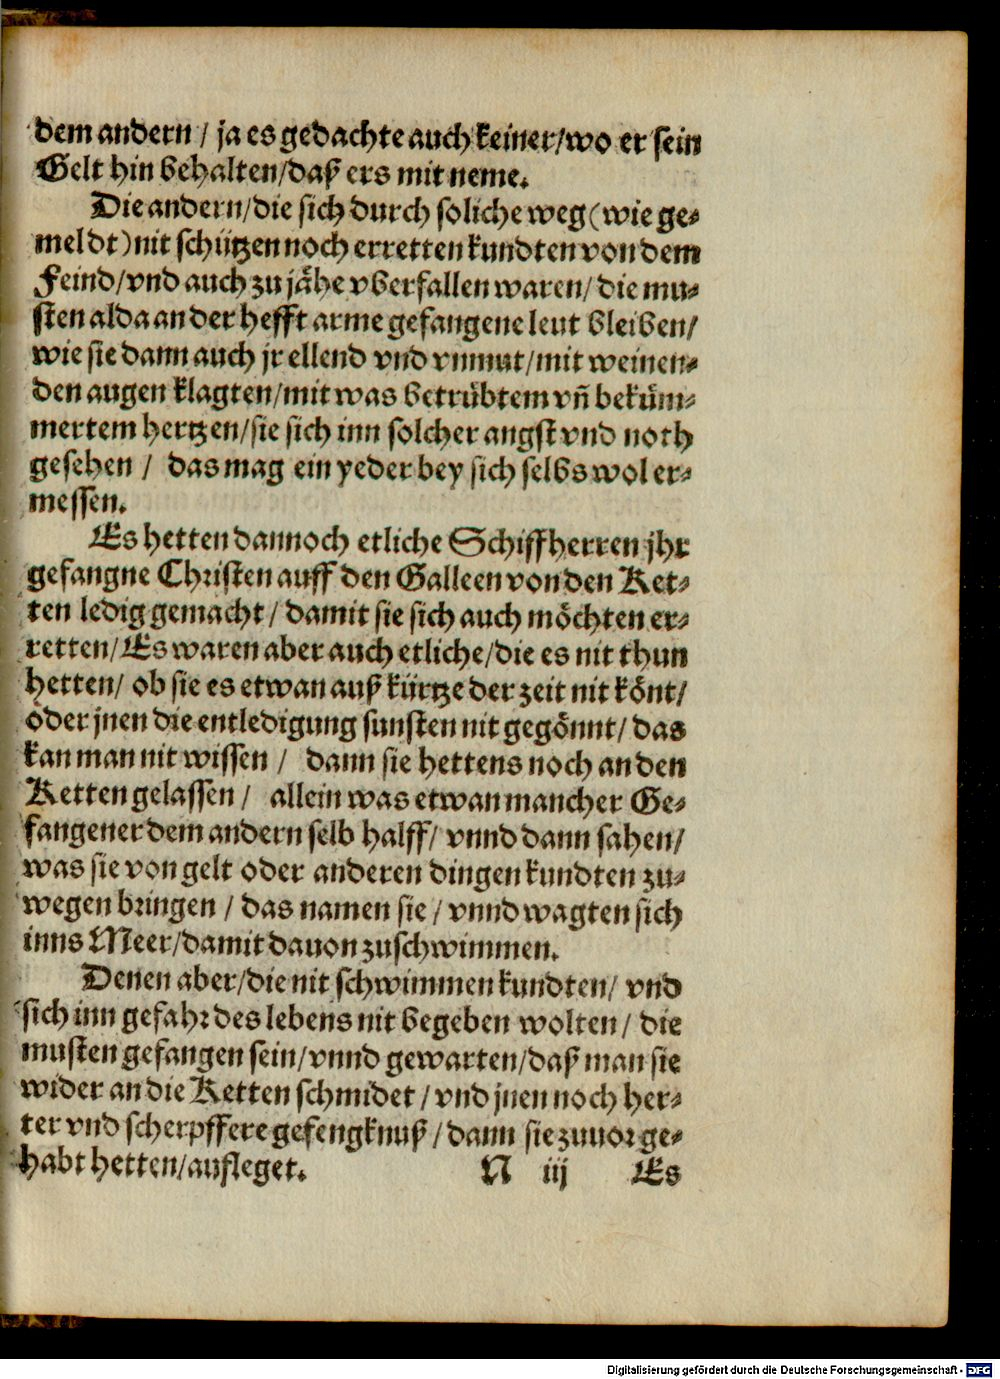 dem andern / ja es gedachte auch keiner/wo er sein
Gelt hin behalten/daß ers mit neme.
Die andern/die sich durch soliche weg(wie ge-
meldt)nit schützen noch erretten kundten von dem
Feind/vnd auch zu jähe vberfallen waren/die mu-
sten alda an der hefft arme gefangene leut bleiben/
wie sie dann auch jr ellend vnd vnmut/mit weinen-
den augen klagten/mit was betrübtem vñ beküm-
mertem hertzen/sie sich inn solcher angst vnd noth
gesehen / das mag ein yeder bey sich selbs wol er-
messen.
Es hetten dannoch etliche Schiffherren jhr
gefangne Christen auff den Galleen von den Ket-
ten ledig gemacht / damit sie sich auch möchten er-
retten/Es waren aber auch etliche/die es nit thun
hetten/ ob sie es etwan auß kürtze der zeit nit könt/
oder jnen die entledigung sunsten nit gegönnt/ das
kan man nit wissen / dann sie hettens noch an den
Ketten gelassen / allein was etwan mancher Ge-
fangener dem andern selb halff/ vnnd dann sahen/
was sie von gelt oder anderen dingen kundten zu-
wegen bringen / das namen sie / vnnd wagten sich
inns Meer/damit dauon zuschwimmen.
Denen aber/die nit schwimmen kundten/ vnd
sich inn gefahr des lebens nit begeben wolten/ die
musten gefangen sein/vnnd gewarten/daß man sie
wider an die Ketten schmidet / vnd jnen noch her-
ter vnd scherpffere gefengknuß / dann sie zuuor ge-
habt hetten/aufleget.
N iij Es
Digitalisierung gefördert durch die Deutsche Forschungsgemeinschaft - DFG